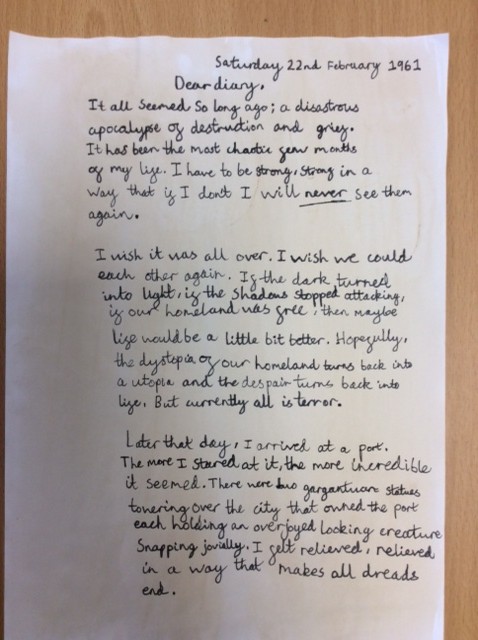 Saturday 22nd February 1961
Dear diary,
It all seemed so long ago; a disastrous
apocalypse of destruction and grief.
It has been the most chaotic few months
of my life. I have to be strong, strong in a
way that if I don't I will never see them
again.
I wish it was all over. I wish we could
each other again. If the dark turned
into light, if the shadows stopped attacking,
if our homeland was free, then maybe
life would be a little bit better. Hopefully,
the dystopia of our homeland turns back into
a utopia and the despair turns back into
life. But currently all is terror.
Later that day, I arrived at a port.
The more I stared at it, the more incredible
it seemed. There were two gargantuan statues
towering over the city that owned the port
each holding an overjoyed looking creature
snapping jovially. I felt relieved, relieved
in a way that makes all dreads
end.